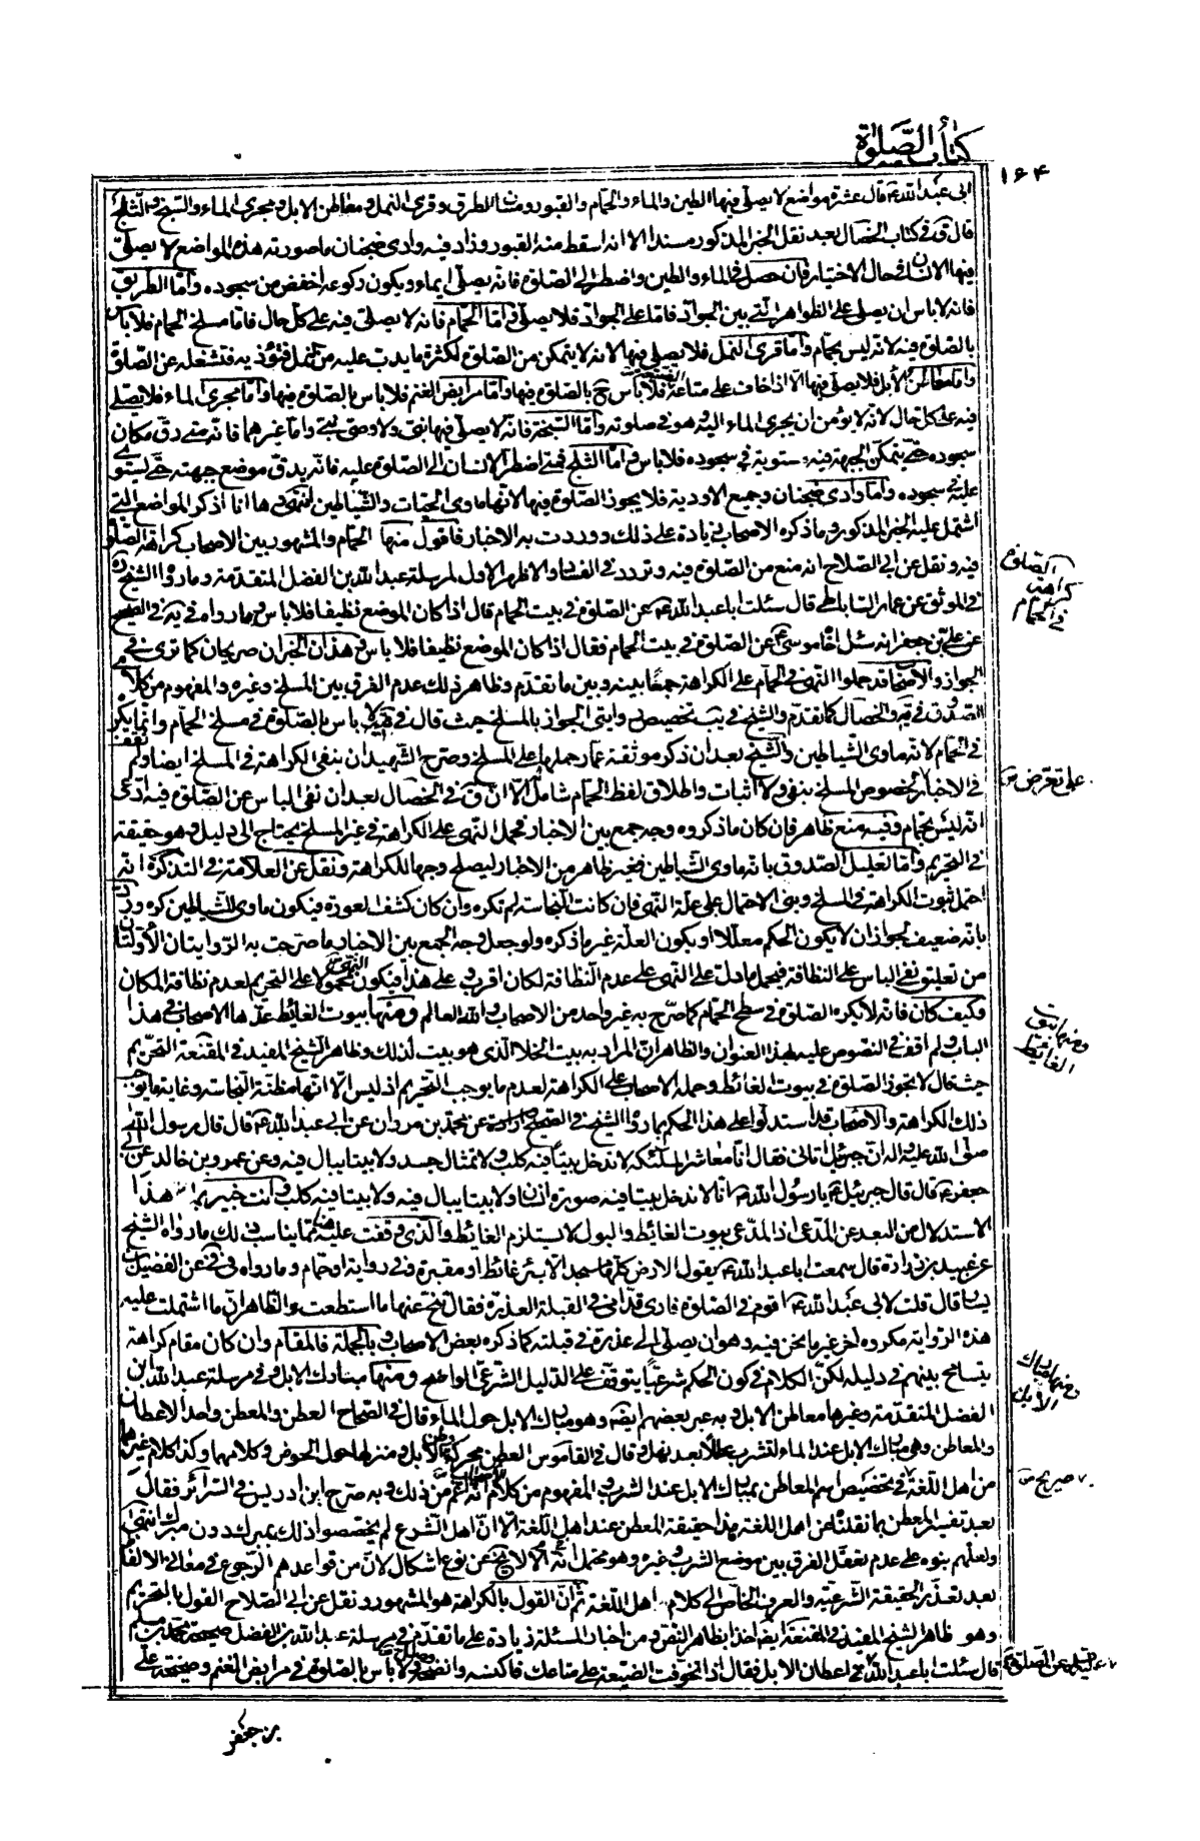 كتاب الصلوة
١۶۴
ابى عبد الله ع قال عشرة مواضع لا يصلى فيها الطين والماء والحمام والقبور ومسان الطرق وقرى النمل ومعاطن الابل ومجرى الماء والسبخ والثلج
قال ق في كتاب الخصال بعد نقل الخبر المذكور مسندا الا انه اسقط منه القبور وزاد فيه وادى ضجنان ما صورته هذه المواضع لا يصلى
فيها الانسان في حال الاختيار فان حصل في الماء والطين واضطر الى الصلوة فانه يصلى ايماء ويكون ركوعه اخفض من سجوده واما الطريق
فانه لا باس ان يصلى على الظواهر التى بين الجواد فاما على الجواد فلا يصلى واما الحمام فانه لا يصلى فيه على كل حال فاما مسلخ الحمام فلا باس
بالصلوة فيه لانه ليس بحمام واما قرى النمل فلا يصلى فيها لانه لا يتمكن من الصلوة لكثرة ما يدب عليه من النمل فتؤذيه فتشغله عن الصلوة
واما معاطن الابل فلا يصلى فيها الا اذا خاف على متاعه الضيعة فلا باس ح بالصلوة فيها واما مرابض الغنم فلا باس بالصلوة فيها واما مجرى الماء فلا يصلى
فيه على كل حال لانه لا يؤمن ان يجرى الماء اليه وهو في صلوته واما السبخة فانه لا يصلى فيها نبى ولا وصى نبى واما غيرهما فانه متى دق مكان
سجوده حتى يتمكن الجبهة فيه مستوية في سجوده فلا باس واما الثلج فمتى اضطر الانسان الى الصلوة عليه فانه يدق موضع جبهته حتى يستوى
عليه في سجوده واما وادى ضجنان وجميع الاودية فلا يجوز الصلوة فيها لانها ماوى الحيات والشياطين انتهى وها انا اذكر المواضع التى
اشتمل عليه الخبر المذكور وما ذكره الاصحاب زيادة على ذلك ووردت به الاخبار فاقول منها الحمام والمشهور بين الاصحاب كراهة الصلوة
فيه ونقل عن ابى الصلاح انه منع من الصلوة فيه وتردد في الفساد والاظهر الاول لمرسلة عبد الله بن الفضل المتقدمة وما رواه الشيخ ره
في الموثق عن عمار الساباطى قال سئلت ابا عبد الله ع عن الصلوة في بيت الحمام قال اذا كان الموضع نظيفا فلا باس وما رواه في يه في الصحيح
عن على بن جعفر انه سئل اخاه موسى ع عن الصلوة في بيت الحمام فقال اذا كان الموضع نظيفا فلا باس وهذان الخبران صريحان كما ترى في
الجواز والاصحاب قد حملوا النهى في الحمام على الكراهة جمعا بينه وبين ما تقدم وظاهر ذلك عدم الفرق بين المسلخ وغيره والمفهوم من كلام
الصدوق في يه والخصال كما تقدم والشيخ في يب تخصيص روايتى الجواز بالمسلخ حيث قال في يه لا باس بالصلوة في مسلخ الحمام وانما يكره
في الحمام لانه ماوى الشياطين والشيخ بعد ان ذكر موثقة عمار حملها على المسلخ وصرح الشهيدان بنفى الكراهة في المسلخ ايضا ولم نقف
في الاخبار لخصوص المسلخ بنفى ولا اثبات واطلاق لفظ الحمام شامل له الا ان ق في الخصال بعد ان نفى الباس عن الصلوة فيه ادعى
انه ليس بحمام وفيه منع ظاهر فان كان ما ذكروه وجه جمع بين الاخبار فحمل النهى على الكراهة في غير المسلخ يحتاج الى دليل وهو حقيقة
في التحريم واما تعليل الصدوق بانه ماوى الشياطين فغير ظاهر من الاخبار ليصلح وجها للكراهة ونقل عن العلامة في التذكرة انه
احتمل ثبوت الكراهة في المسلخ وبنى الاحتمال على علة النهى فان كانت النجاسة لم تكره وان كان كشف العورة فيكون ماوى الشياطين كره ورد
بانه ضعيف لجواز ان لا يكون الحكم معللا او يكون العلة غير ما ذكره ولو جعل وجه الجمع بين الاخبار ما صرحت به الروايتان الأولتان
من تعليق نفى الباس على النظافة فيحمل ما دل على النهى على عدم النظافة لكان اقرب وعلى هذا فيكون النهى محمولا على التحريم لعدم نظافة المكان
وكيف كان فانه لا يكره الصلوة في سطح الحمام كما صرح به غير واحد من الاصحاب والله العالم ومنها بيوت الغائط عدها الاصحاب في هذا
الباب ولم اقف في النصوص عليه بهذا العنوان والظاهر ان المراد به بيت الخلا الذى هو بيت لذلك وظاهر الشيخ المفيد في المقنعة التحريم
حيث قال لا تجوز الصلوة في بيوت الغائط وحمله الاصحاب على الكراهة لعدم ما يوجب التحريم اذ ليس الا انها مظنة النجاسة وغاية ما يوجب
ذلك الكراهة والاصحاب قد استدلوا على هذا الحكم بما رواه الشيخ في الصحيح عن محمد بن مروان عن ابى عبد الله ع قال قال رسول الله
صلى الله عليه واله ان جبرئيل اتانى فقال انا معاشر الملئكة لا ندخل بيتا فيه كلب ولا تمثال جسد ولا بيتا يبال فيه وعن عمرو بن خالد عن ابى
جعفر ع قال قال جبرئيل ع يا رسول الله ص انا لا ندخل بيتا فيه صورة انسان ولا بيتا يبال فيه ولا بيتا فيه كلب وانت خبير بما في هذا
الاستدلال من البعد عن المدعى اذ المدعى بيوت الغائط والبول لا يستلزم الغائط والذى وقفت عليه مما يناسب ذلك ما رواه الشيخ
عن عبيد بن زرارة قال سمعت ابا عبد الله ع يقول الارض كلها مسجد الا بئر غائط او مقبرة وفي رواية او حمام وما رواه في في عن الفضيل بن
يسار قال قلت لابى عبد الله ع اقوم في الصلوة فارى قدامى في القبلة العذرة فقال تنح عنها ما استطعت والظاهر ان ما اشتملت عليه
هذه الرواية مكروه اخر غير ما نحن فيه وهو ان يصلى الى عذرة في قبلته كما ذكره بعض الاصحاب وبالجملة فالمقام وان كان مقام كراهة
يتسامح بينهم في دليله لكن الكلام في كون الحكم شرعيا يتوقف على الدليل الشرعى الواضح ومنها مبارك الابل وفي مرسلة عبد الله بن
الفضل المتقدمة وغيرها معاطن الابل وبه عبر بعضهم ايضه وهو مبارك الابل حول الماء قال في الصحاح العطن والمعطن واحد الاعطان
والمعاطن وهى مبارك الابل عند الماء لتشرب عللا بعد نهل وقال في القاموس العطن محركة وطن الابل ومنزلها حول الحوض وفي كلامهما وكذا كلام غيرهما
من اهل اللغة في تخصيص اسم المعاطن بمبارك الابل عند الشرب والمفهوم من كلام الاصحاب انه اعم من ذلك وبه صرح ابن ادريس في السرائر فقال
بعد تفسير المعطن بما نقلناه عن اهل اللغة هذا حقيقة المعطن عند اهل اللغة الا ان اهل الشرع لم يخصصوا ذلك بمبرك دون مبرك انتهى
ولعلهم بنوه على عدم تعقل الفرق بين موضع الشرب وغيره وهو محتمل الا انه لا يخ عن نوع اشكال لان من قواعدهم الرجوع في معانى الالفاظ
بعد تعذر الحقيقة الشرعية والعرف الخاص الى كلام اهل اللغة ثم ان القول بالكراهة هو المشهور ونقل عن ابى الصلاح القول بالتحريم
وهو ظاهر الشيخ المفيد في المقنعة ايضه اخذا بظاهر النص ومن اخبار المسئلة زيادة على ما تقدم في مرسلة عبد الله بن الفضل صحيحة محمد بن مسلم
قال سئلت ابا عبد الله ع في اعطان الابل فقال اذا تخوفت الضيعة على متاعك فاكنسه وانضحه ولا باس بالصلوة في مرابض الغنم وصحيحة على
بن جعفر
الصلوة
كراهة
في الحمام
على تعرض
ومنها بيوت
الغايط
ومنها مبارك
الابل
صريح
عن الصلوة